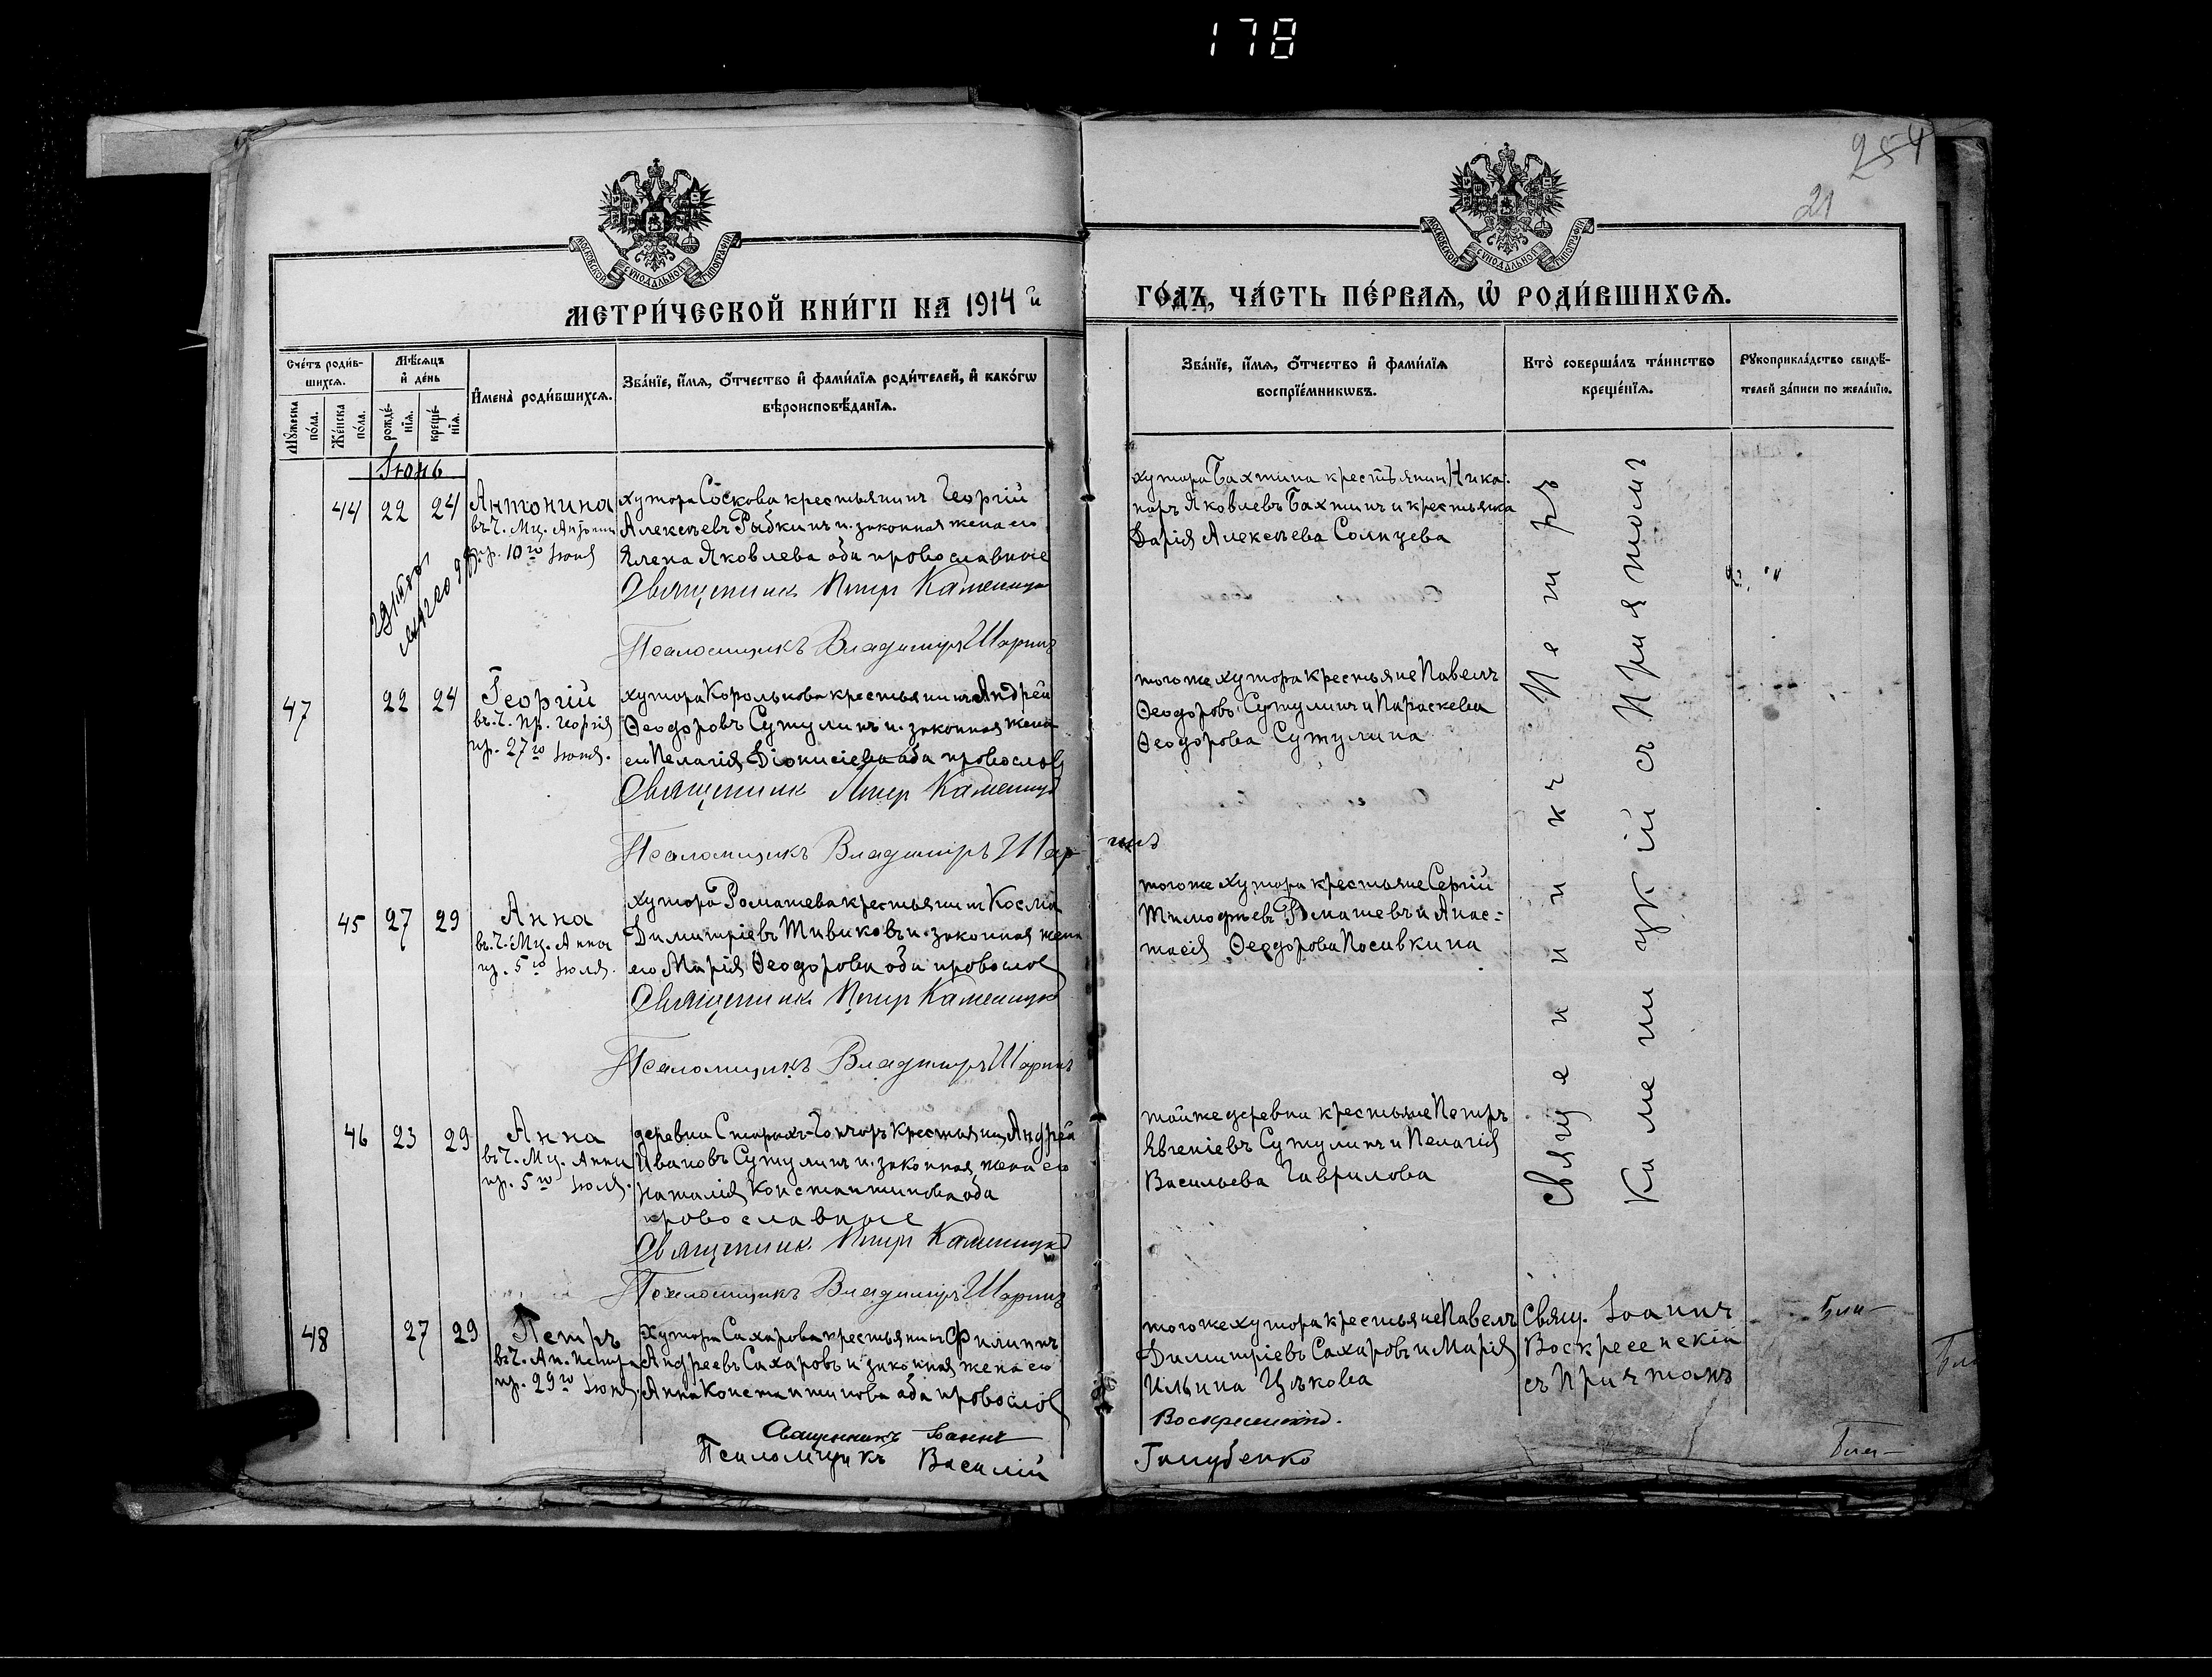 178
254
21
МОСКОВСКОЙ СѴНОДАЛЬНОЙ ТИПОГРАФІИ
МОСКОВСКОЙ СѴНОДАЛЬНОЙ ТИПОГРАФІИ
МЕТРИ́ЧЕСКОЙ КНИ́ГИ НА 1914 й
ГО́ДЪ, ЧА́СТЬ ПЕ́РВАЯ, Ѡ РОДИ́ВШИХСЯ.
Сче́тъ роди́в-
шихся.
Мꙋ́жеска по́ла.
Же́нска по́ла.
Мѣ́сяцъ и҆ де́нь
рожде́-
нїя.
креще́-
нїя.
И҆мена̀ роди́вшихся.
Зва́нїе, и҆́мя, ѻ҆́тчество и҆ фами́лїя роди́телей, и҆ како́гѡ
вѣроисповѣ́данїя.
Зва́нїе, и҆́мя, ѻ҆́тчество и҆ фами́лїя
воспрїе́мникѡвъ.
Кто̀ соверша́лъ та́инство
креще́нїя.
Рꙋкоприкла́дство свидѣ́-
телей за́писи по жела́нїю.
Іюнь
44 22 24 Антонина
въ ч. Мц. Антонины
пр. 10го Іюня
хутора Соскова крестьянинъ Георгій
Алексѣевъ Рыбкинъ и законная жена его
Елена Яковлева оба православные
Священникъ Петръ Каменицкій
Псаломщикъ Владиміръ Шаринъ
хутора Бахтина крестьянин Ника-
норъ Яковлевъ Бахтинъ и крестьянка
Дарія Алексѣева Солнцева
47 22 24 Георгій
въ ч. пр. Георгія
пр. 27го Іюня.
хутора Королькова крестьянинъ Андрей
Ѳеодоровъ Сутулинъ и законная жена
его Пелагія Діонисіева оба православ
Священникъ Петръ Каменицкій
Псаломщикъ Владиміръ Шар-
инъ
того же хутора крестьяне Павелъ
Ѳеодоровъ Сутулинъ и Параскева
Ѳеодорова Сутулина
45 27 29 Анна
въ ч. Мц. Анны
пр. 5го Іюля.
хутора Ромашева крестьянинъ Косма
Димитріевъ Тивиковъ и законная жена
его Марія Ѳеодорова оба православ
Священникъ Петръ Каменицкій
Псаломщикъ Владиміръ Шаринъ
того же хутора крестьяне Сергій
Тимофеевъ Ромашевъ и Анас-
тасія Ѳеодорова Посивкина
46 23 29 Анна
въ ч. Мц. Анны
пр. 5го Іюля.
деревни Старыхъ-Гончаръ крестьянинъ Андрей
Ивановъ Сутулинъ и законная жена его
Наталія Константинова оба
православные
Священникъ Петръ Каменицкій
Псаломщикъ Владиміръ Шаринъ
той же деревни крестьяне Петръ
Евгеніевъ Сутулинъ и Пелагія
Васильева Гаврилова
Священникъ Петръ
Каменицкій съ Причтомъ
48 27 29 Петръ
въ ч. Ап. Петра
пр. 29го Іюня.
хутора Сахарова крестьянинъ Филиппъ
Андреевъ Сахаровъ и законная жена его
Анна Константинова оба православ
того же хутора крестьяне Павелъ
Димитріевъ Сахаровъ и Марія
Ильина Цѣкова
Свящ. Іоаннъ
Воскресенскій
съ Причтомъ
Священникъ Іоаннъ
Воскресенскій.
Псаломщикъ Василій
Голубенко